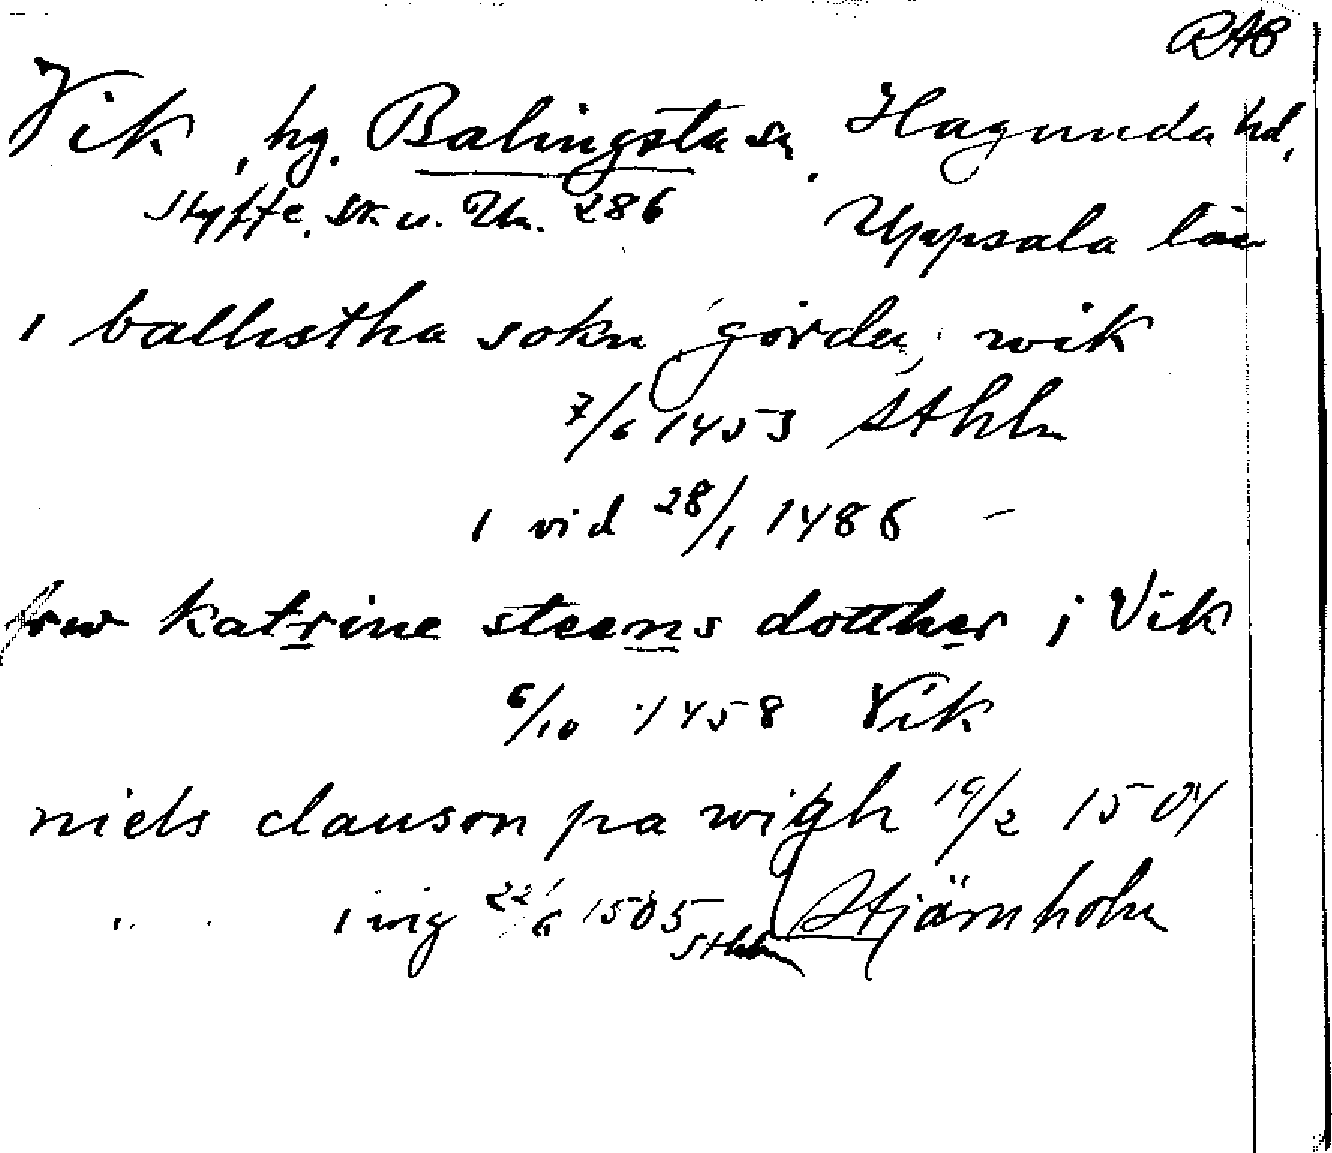 RAP
Vik, hg. Balingsta sn. Hagunda hd,
Styffe, Sk. u. Un. 286 Uppsala län
i ballistha sokn görder, wik
7/6 1453 Sthlm
i vid 28/1 1486 –
frw katrine steens dotther j Vik
6/10 1458 Vik
niels clauson pa wigh 19/2 1504
" i vig 22/6 1505 Sthlm Stjärnholm